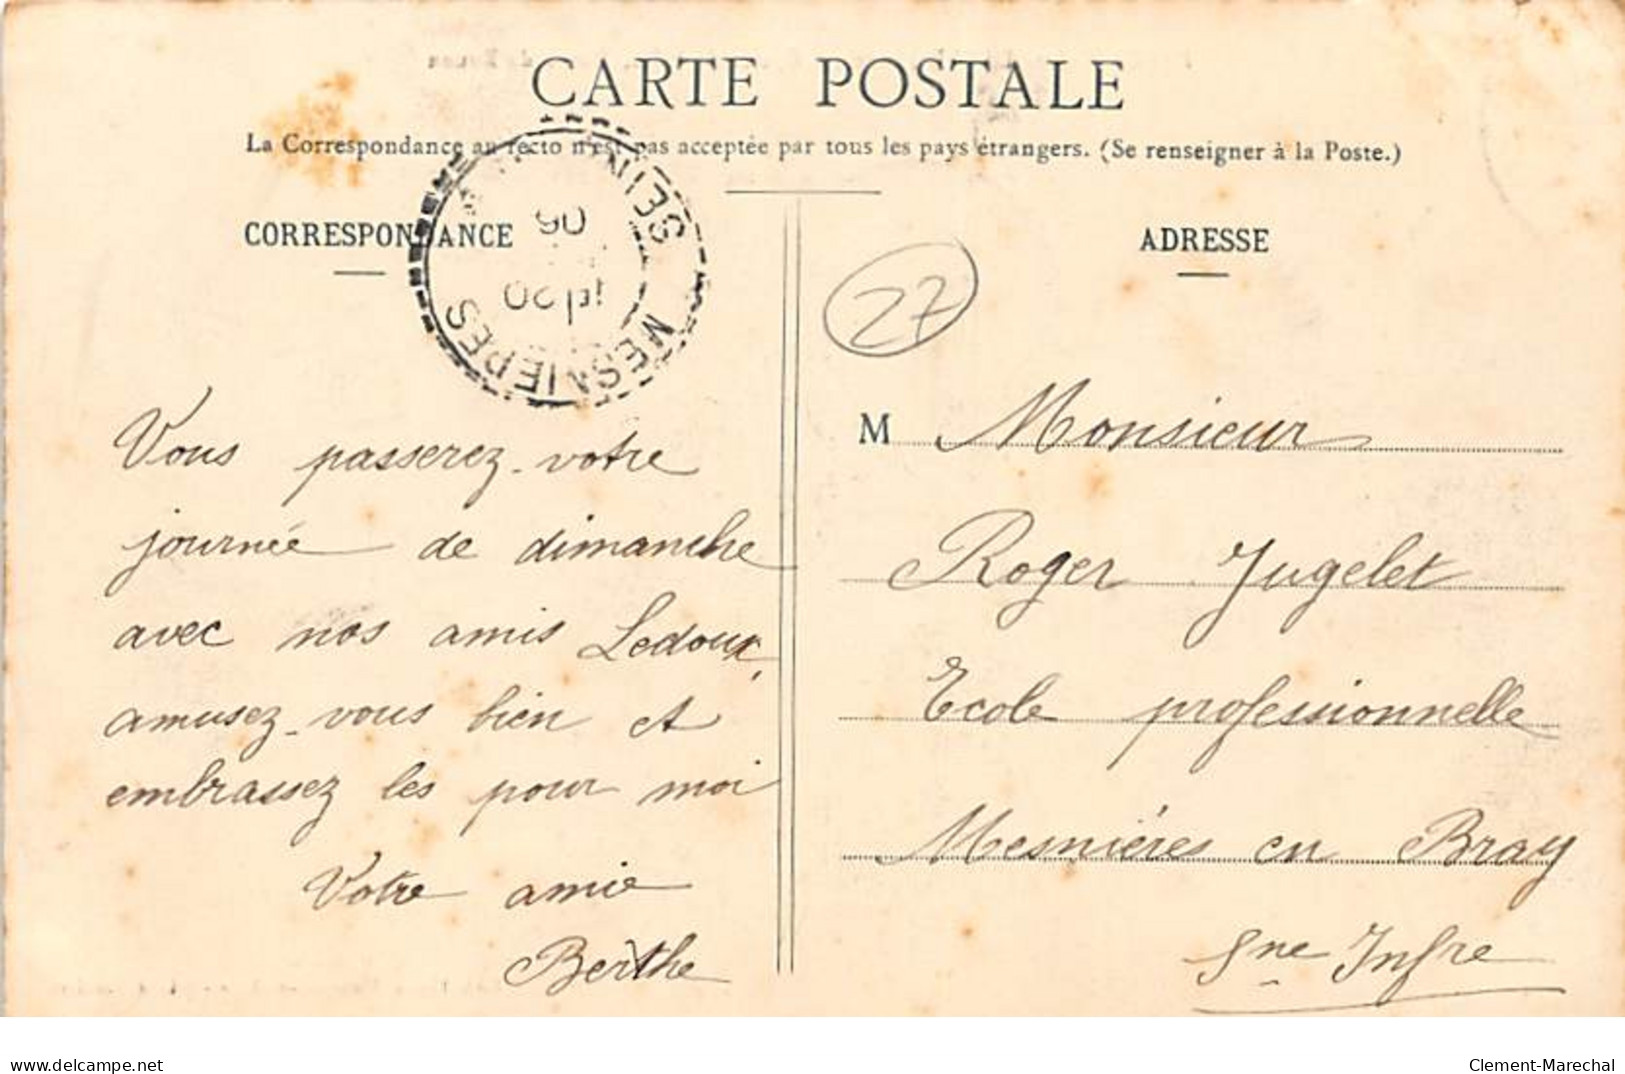 CARTE POSTALE
La Correspondance au recto n'est pas acceptée par tous les pays étrangers. (Se renseigner à la Poste.)
CORRESPONDANCE
ADRESSE
MESNIERES
20
06
27
Vous passerez-votre
journée de dimanche
avec nos amis Ledoux,
amusez-vous bien et
embrassez les pour moi
Votre amie
Berthe
M Monsieur
Roger Jugelet
Ecole professionnelle
Mesniéres en Bray
Sne Infre
www.delcampe.net
Clement-Marechal